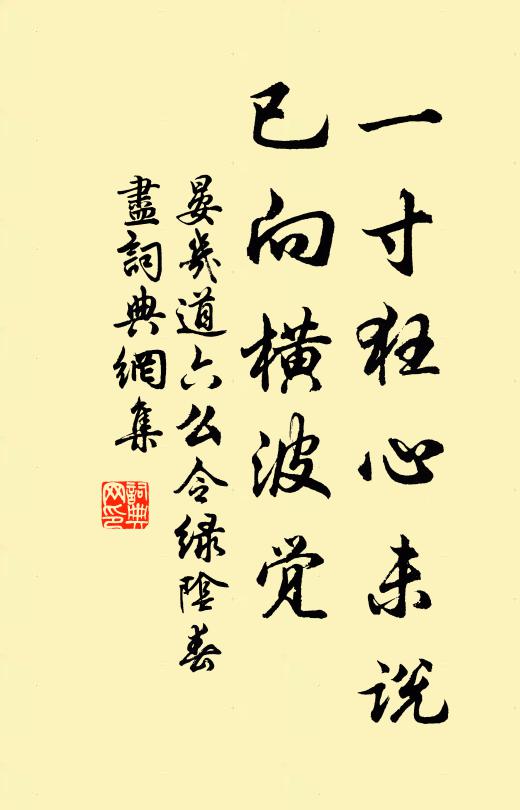 一寸狂心未说
已向横波觉
晏几道六么令绿阴春
尽词典网集
词典网印